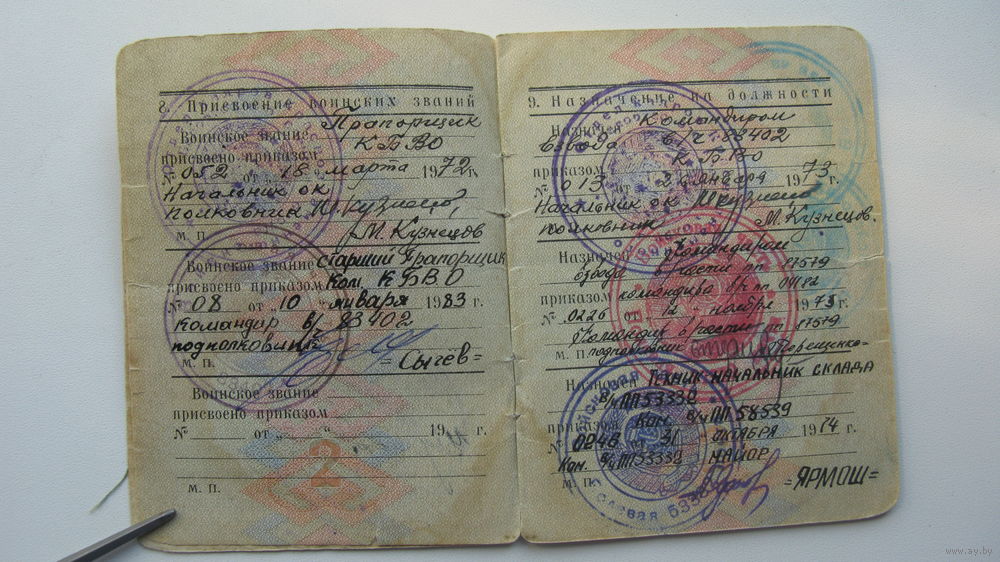 8. Присвоение воинских званий
Воинское звание Прапорщик
присвоено приказом КБВО
№ 052 от „ 18 " марта 1972 г.
Начальник ок
полковник
М. Кузнецов
м. п.
Воинское звание старший прапорщик
присвоено приказом Ком. КБВО
№ 08 от „ 10 " января 1983 г.
командир в/ч 83402
подполковник
м. п. =Сычёв=
Воинское звание
присвоено приказом
№ от „ " 19 г.
м. п.
2
9. Назначение на должности
Назначен Командиром
взвода в/ч 83402
КБВО
№ 013 2 января 1973 г.
Начальник ок
полковник М. Кузнецов.
Назначен Командиром
взвода в/части пп 17579
приказом командира в/ч пп 04182
№ 0226 от 12 ноября 1973 г.
Командир в/части пп 17579
м. п. подполковник Терещенко
Назначен Техник-начальник склада
в/ч ПП 53332
приказом Ком. в/ч ПП 58539
№ 0246 31 октября 1974 г.
Ком. в/ч ПП 53332 майор
м. п. =Ярмош=
полевая
www.ay.by